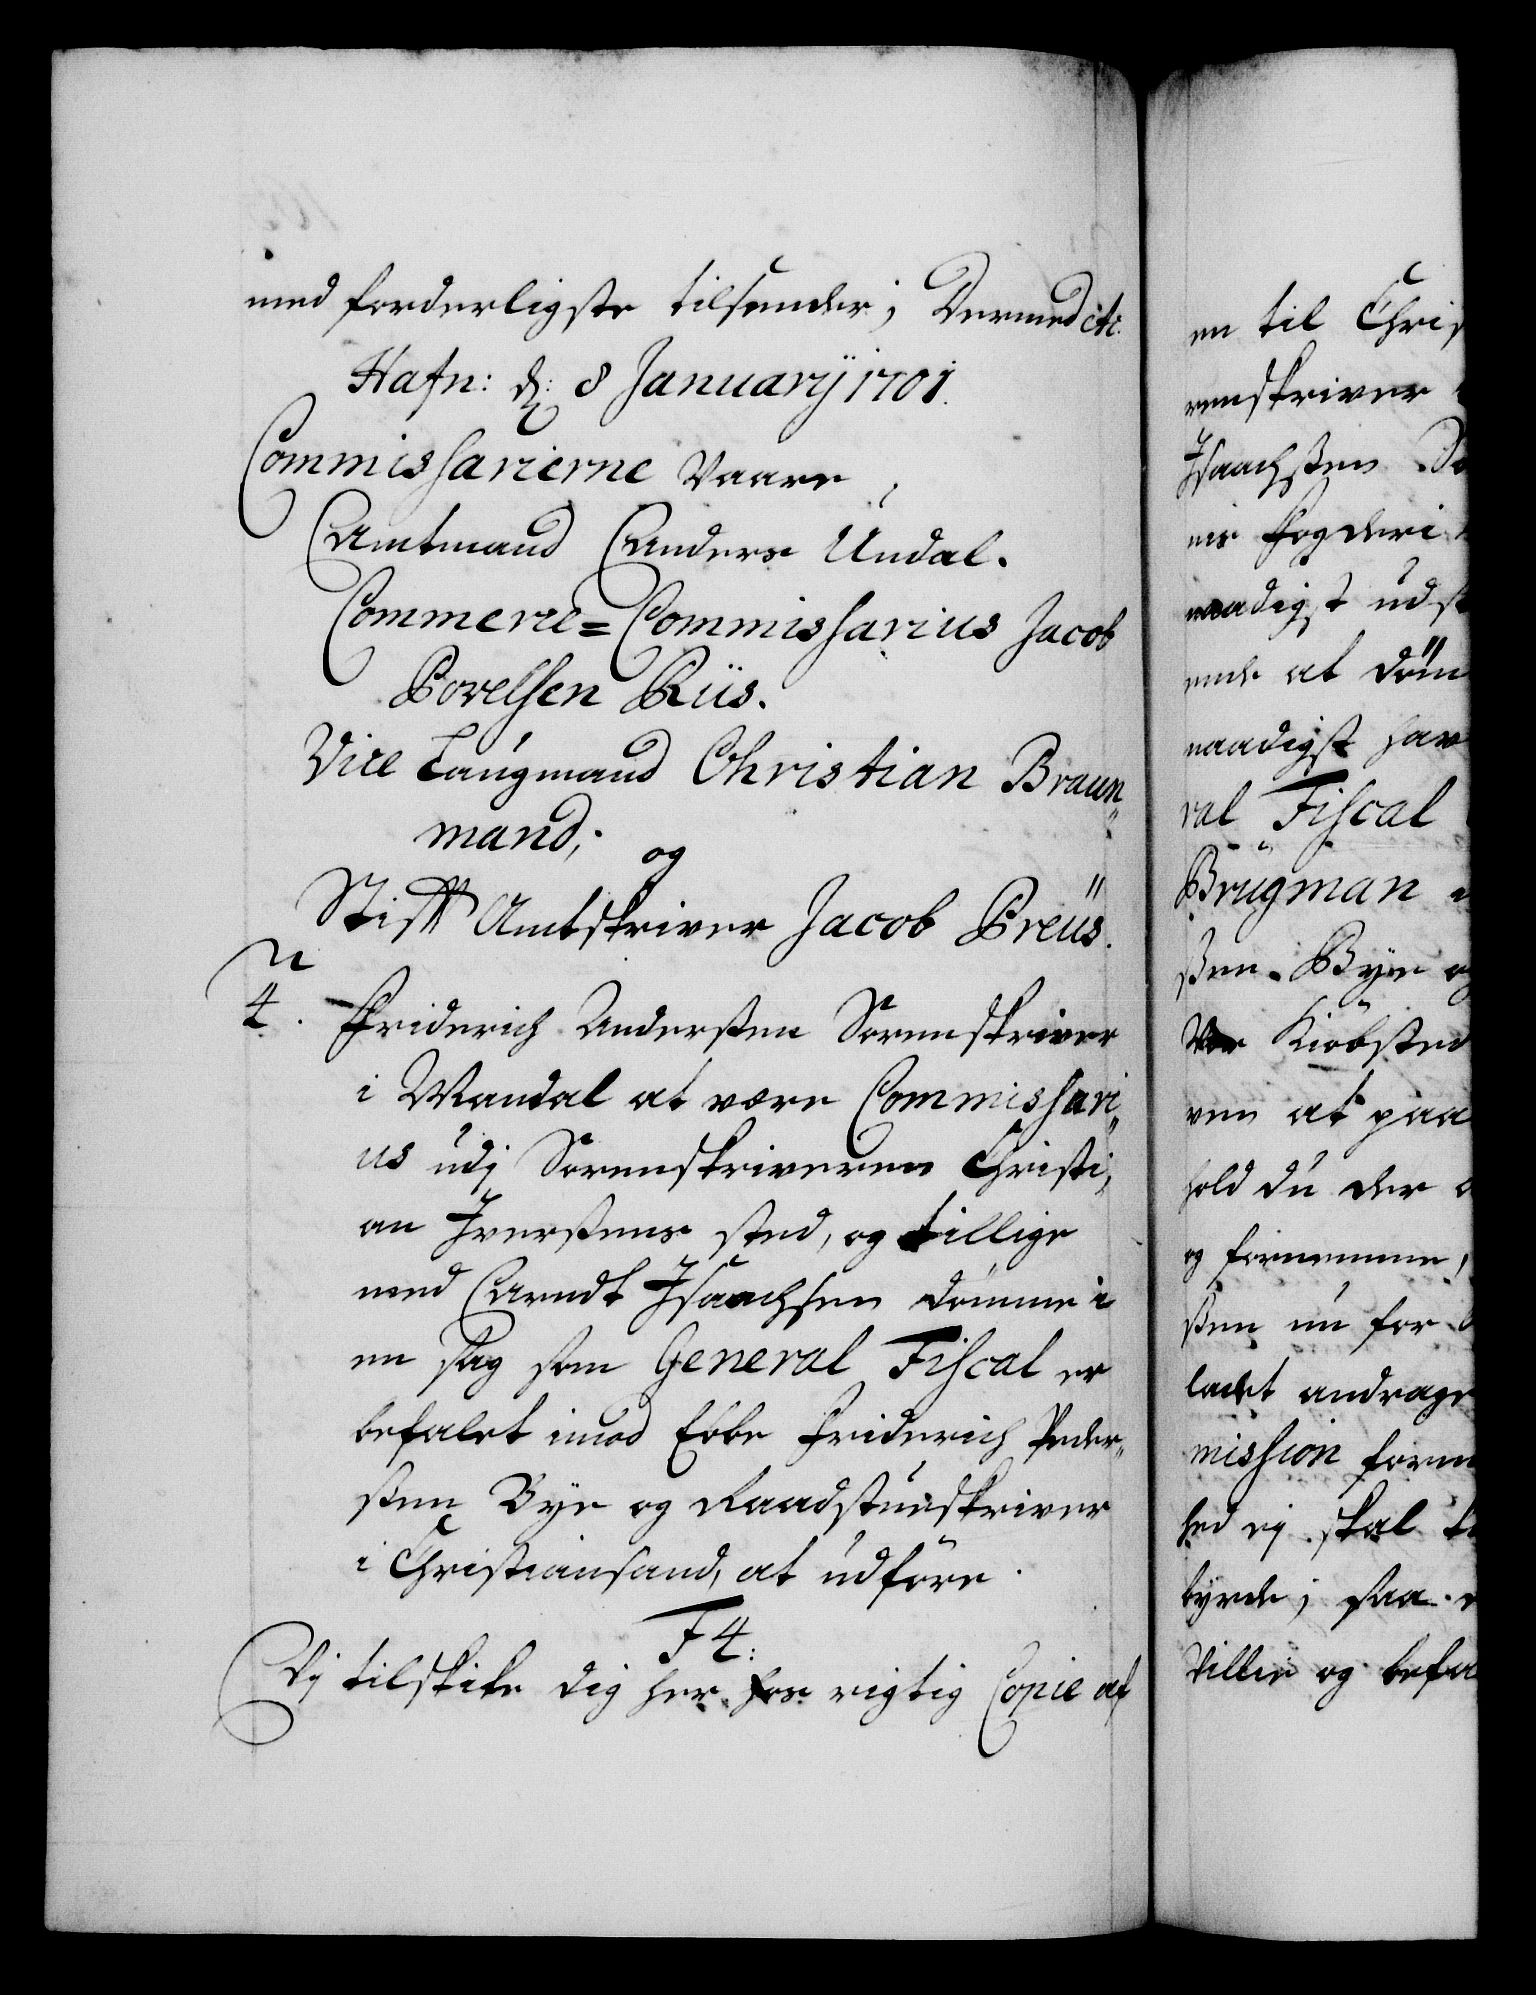 med forderligste tilsender; Dermed etc.
Hafn: d: 8 Januarij 1701.
Commissarierne Vaare,
Amtmand Anders Undal.
Commerce=Commissarius Jacob
Povelsen Riis.
Vice Laugmand Christian Braun„
mand, og
Stifft Amtskriver Jacob Preüs.
4. Friderich Anderssen Sorenskriver
i Mandal at være Commissari„
us udj Sorenskriveren Christi„
an Iverssens sted, og tillige
med Arndt Isaachsen dømme i
en sag som General Fiscal er
befalet imod Ebbe Friderich Peder„
ssen Bye og Raadstueskriver
i Christiansand, at udføre.
F 4:
Vj tilskike dig her hos rigtig Copie af
en til Chris
renskriver
Isaachssen So
nis fogderi
naadigst udst
ende at döm
naadigst hav
ral Fiscal
Brügman
ssen Bye og
Vor Kiöbsted
ven at paa
hold du der
og fornemme,
ssen nu for
ladet andrage
mission form
hed ej skal
byrde; saa
Villie og befa